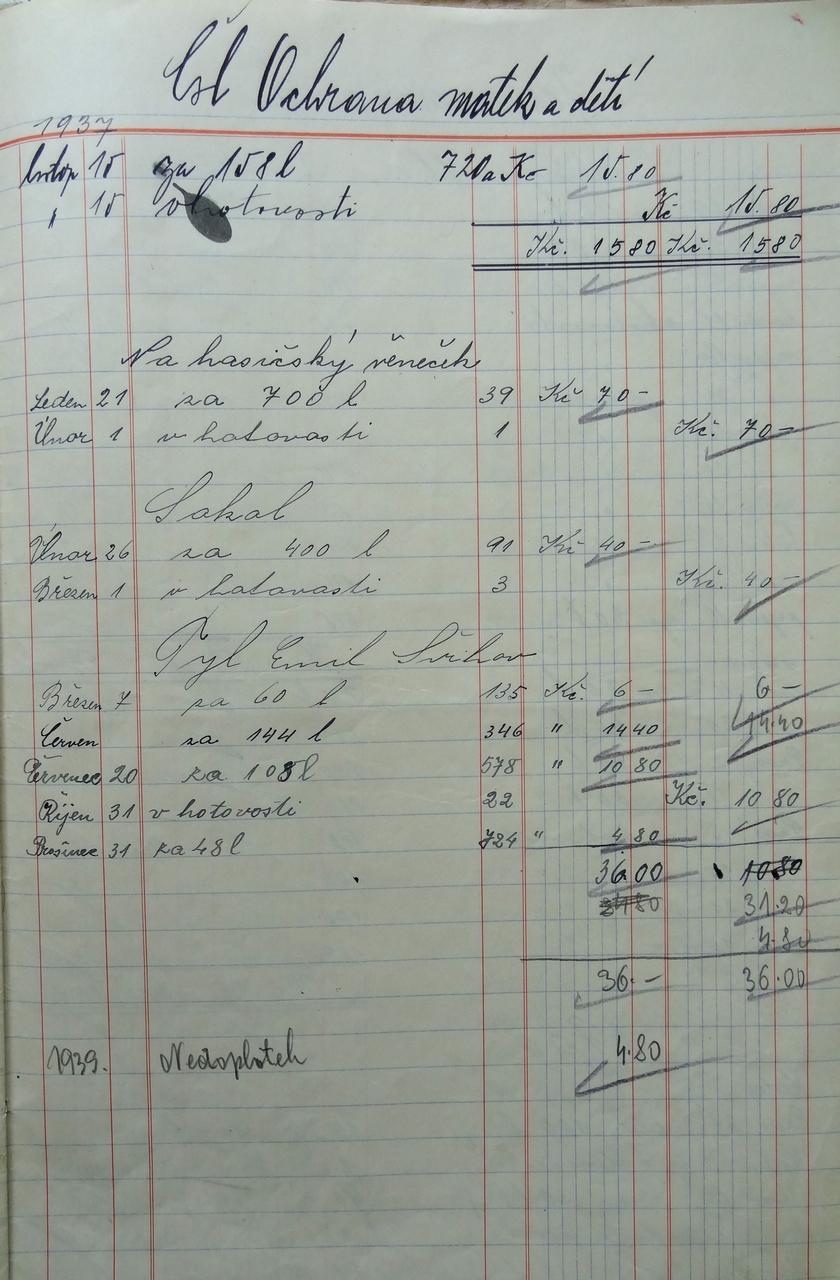 Čsl Ochrana matek a dětí
1937
listop 15 za 158 l 720a Kč 15.80
" 15 v hotovosti Kč 15.80
Kč. 1580 Kč. 1580
Na hasičský věneček
Leden 21 za 700 l 39 Kč 70-
Únor 1 v hotovosti 1 Kč. 70-
Sokol
Únor 26 za 400 l 91 Kč 40-
Březen 1 v hotovosti 3 Kč. 40-
Tyl Emil Svihov
Březen 7 za 60 l 135 Kč. 6- 6-
Červen za 144 l 346 " 1440 14.40
Červenec 20 za 108 l 578 " 10 80
Říjen 31 v hotovosti 22 Kč. 10 80
Prosinec 31 za 48 l 724 " 4 80
36.00 10 80
31.20
4.80
36.- 36.00
1939. Nedoplatek 4.80